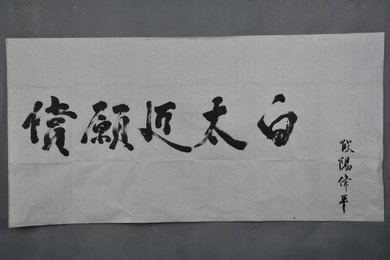 償願近太白
欧陽偉平